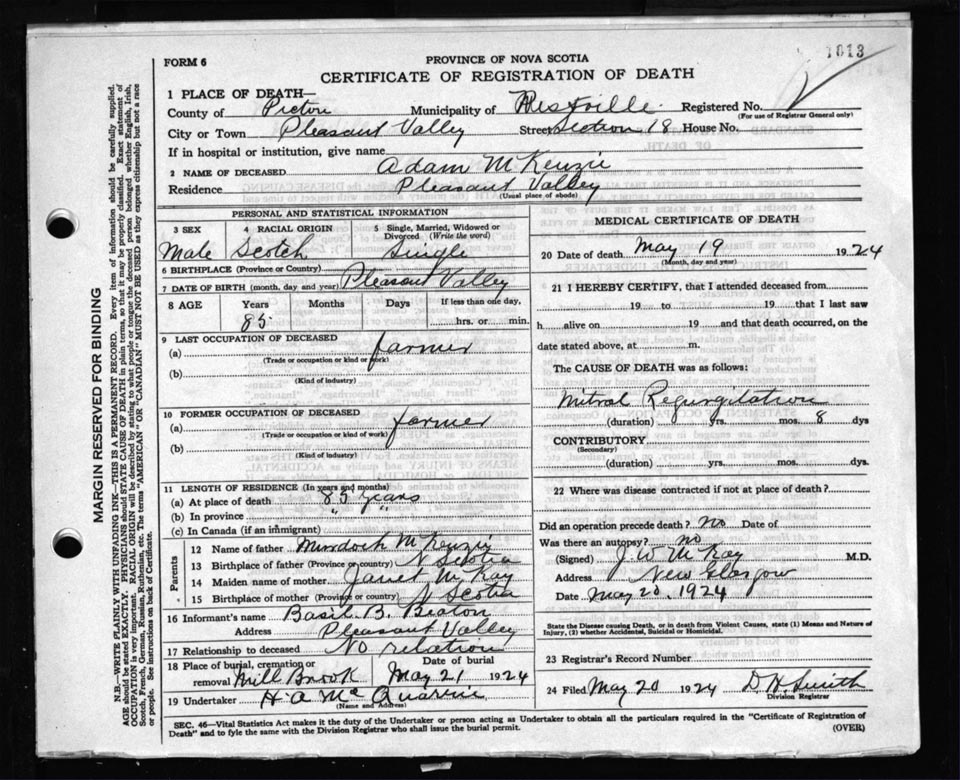 1013
FORM 6
PROVINCE OF NOVA SCOTIA
CERTIFICATE OF REGISTRATION OF DEATH
1 PLACE OF DEATH—
County of Pictou Municipality of Westville Registered No.
(For use of Registrar General only)
City or Town Pleasant Valley Street Section 18 House No.
If in hospital or institution, give name
2 NAME OF DECEASED Adam McKenzie
Residence Pleasant Valley
(Usual place of abode)
PERSONAL AND STATISTICAL INFORMATION
3 SEX 4 RACIAL ORIGIN 5 Single, Married, Widowed or Divorced (Write the word)
Male Scotch Single
6 BIRTHPLACE (Province or Country)
7 DATE OF BIRTH (month, day and year) Pleasant Valley
8 AGE Years Months Days If less than one day,
85 hrs. or min.
9 LAST OCCUPATION OF DECEASED
(a) farmer
(Trade or occupation or kind of work)
(b)
(Kind of industry)
10 FORMER OCCUPATION OF DECEASED
(a) farmer
(Trade or occupation or kind of work)
(b)
(Kind of industry)
11 LENGTH OF RESIDENCE (In years and months)
(a) At place of death 85 years
(b) In province " "
(c) In Canada (if an immigrant)
Parents
12 Name of father Murdoch McKenzie
13 Birthplace of father (Province or country) N Scotia
14 Maiden name of mother Janet McKay
15 Birthplace of mother (Province or country) N Scotia
16 Informant's name Basil B. Beaton
Address Pleasant Valley
17 Relationship to deceased No relation
18 Place of burial, cremation or removal Mill Brook Date of burial May 21 1924
19 Undertaker H A McQuarrie
(Name and Address)
MEDICAL CERTIFICATE OF DEATH
20 Date of death May 19 1924
(Month, day and year)
21 I HEREBY CERTIFY, that I attended deceased from
19 to 19 that I last saw
h alive on 19 and that death occurred, on the
date stated above, at m.
The CAUSE OF DEATH was as follows:
Mitral Regurgitation
(duration) yrs. mos. 8 dys
CONTRIBUTORY
(Secondary)
(duration) yrs. mos. dys.
22 Where was disease contracted if not at place of death?
Did an operation precede death? No Date of
Was there an autopsy? no
(Signed) J. W. McKay M.D.
Address New Glasgow
Date May 20, 1924
State the Disease causing Death, or in death from Violent Causes, state (1) Means and Nature of
Injury, (2) whether Accidental, Suicidal or Homicidal.
23 Registrar's Record Number
24 Filed May 20 1924 D H Smith
Division Registrar
SEC. 46—Vital Statistics Act makes it the duty of the Undertaker or person acting as Undertaker to obtain all the particulars required in the "Certificate of Registration of
Death" and to fyle the same with the Division Registrar who shall issue the burial permit.
(OVER)
MARGIN RESERVED FOR BINDING
N.B.—WRITE PLAINLY WITH UNFADING INK—THIS IS A PERMANENT RECORD. Every item of information should be carefully supplied.
AGE should be stated EXACTLY. PHYSICIANS should STATE CAUSE OF DEATH in plain terms, so that it may be properly classified. Exact statement of
OCCUPATION is very important. RACIAL ORIGIN will be described by stating to what people or tongue the deceased person belonged, whether English, Irish,
Scotch, French, German, Russian, Ruthenian, etc. The terms "AMERICAN" OR "CANADIAN" MUST NOT BE USED as they express citizenship but not a race
or people. See instructions on back of Certificate.